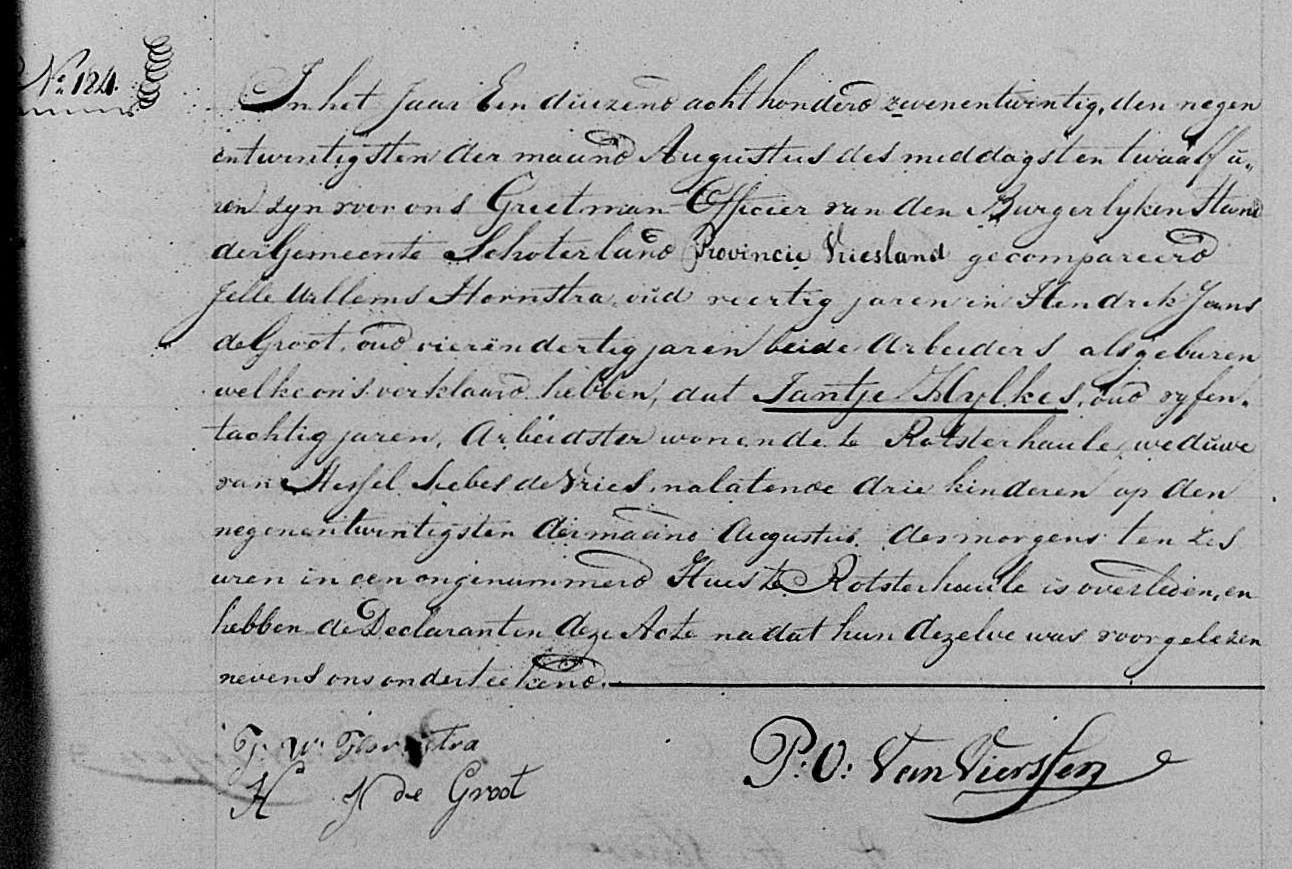 No 124.
In het Jaar Een duizend acht honderd zevenentwintig, den negen
entwintigsten der maand Augustus des middags ten twaalf u„
ren zyn voor ons Grietman Officier van den Burgerlyken Stand
der Gemeente Schoterland Provincie Vriesland gecompareerd
Jelle Willems Hornstra, oud veertig jaren en Hendrik Jans
de Groot, oud vierëndertig jaren beide Arbeiders als geburen
welke ons verklaard hebben, dat Jantje Hylkes, oud vyfen„
tachtig jaren, Arbeidster wonende te Rotsterhaule, weduwe
van Hessel Siebes de Vries, nalatende drie kinderen op den
negenentwintigsten der maand Augustus des morgens ten zes
uren in een ongenummerd Huis te Rotsterhaule is overleden, en
hebben de Declaranten deze Acte na dat hun dezelve was voorgelezen
nevens ons onderteekend.
J. W. Hornstra
P: O: Van Vierssen
H J de Groot